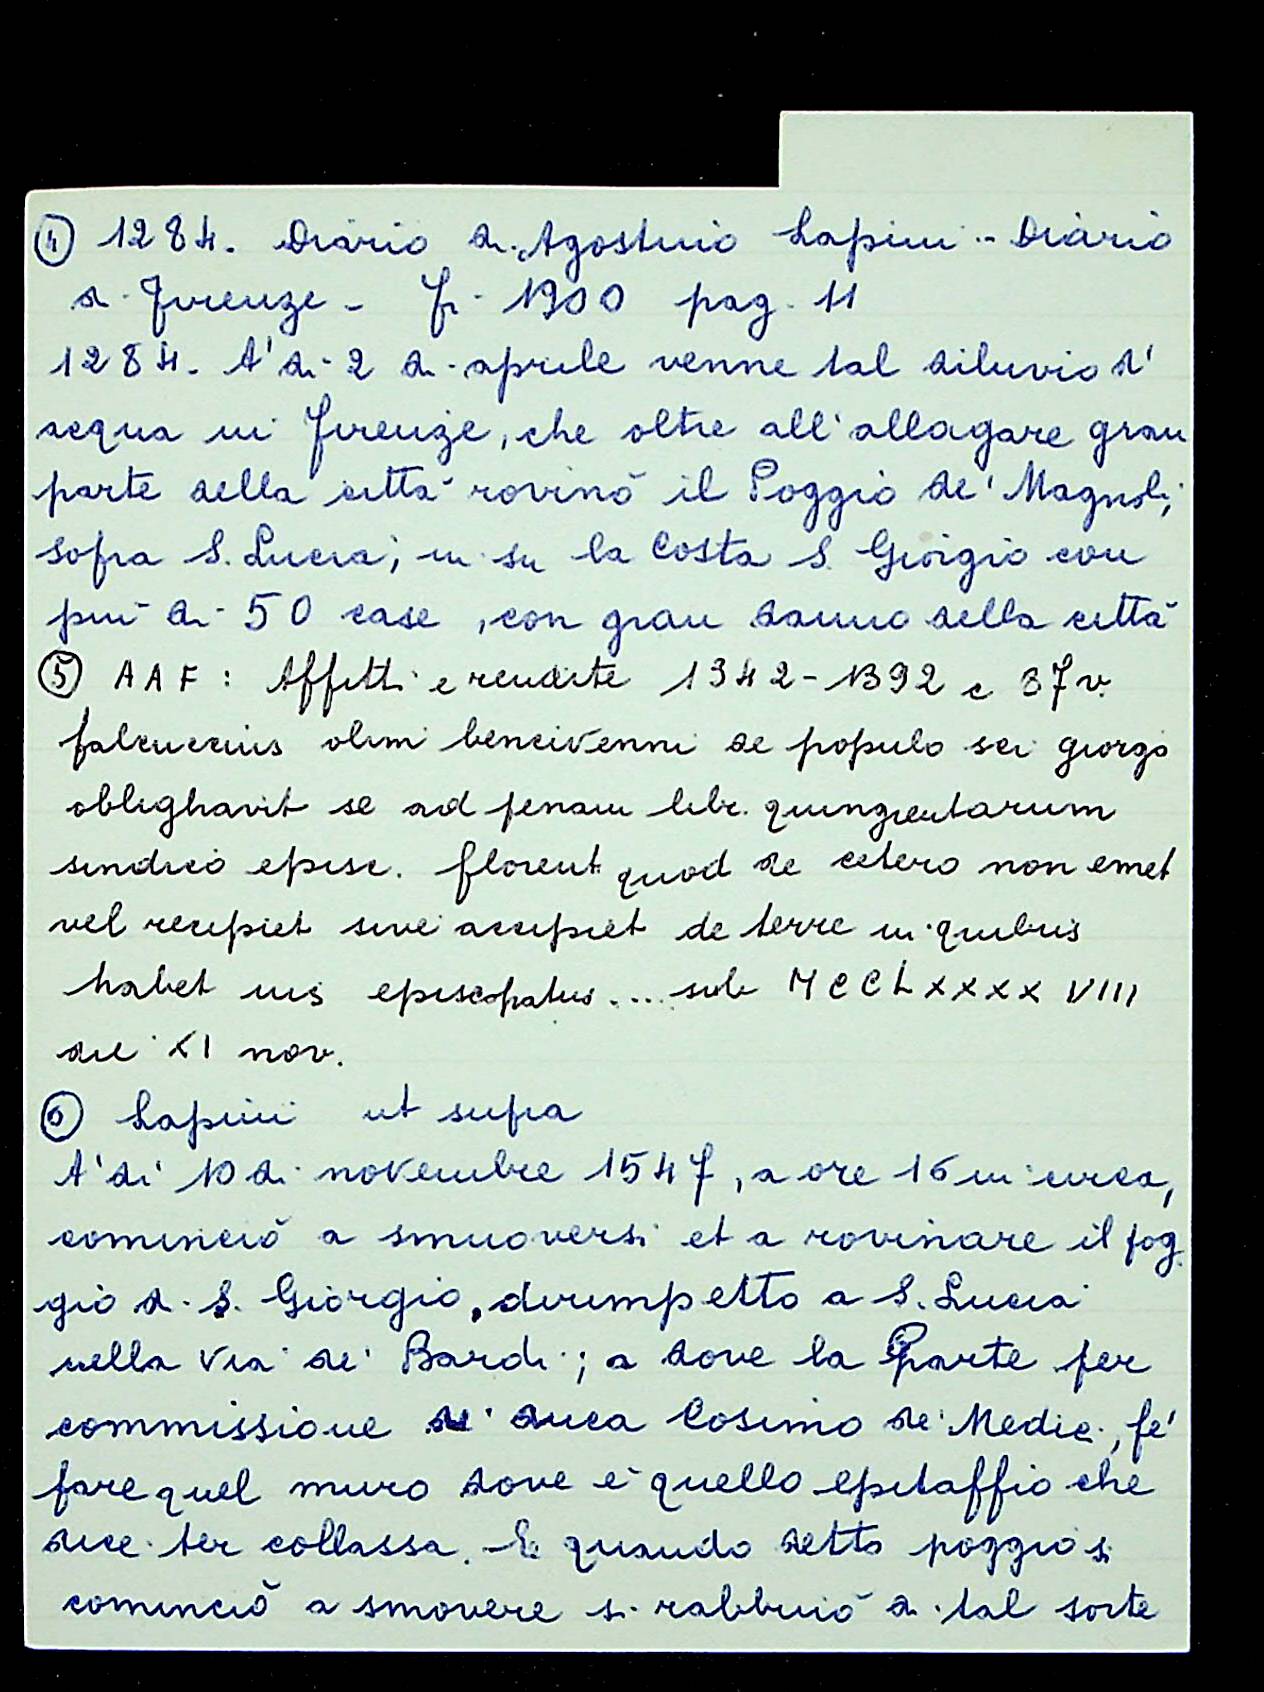 ④ 1284. Diario di Agostino Lapini - Diario
di Firenze - Fi. 1900 pag. 11
1284. A' di 2 di aprile venne tal diluvio d'
acqua in Firenze, che oltre all'allagare gran
parte della città rovinò il Poggio de' Magnoli,
sopra S. Lucia, in su la Costa S. Giorgio con
più di 50 case, con gran danno della città
⑤ AAF: Affitti e rendite 1342-1392 c 37v.
falcuccius olim bencivenni de populo sci giorgo
oblighavit se ad penam libr. quingentarum
sindico episc. florent. quod de cetero non emet
vel recipiet sive accipiet de terre in quibus
habet ius episcopatus.... sub MCCLXXXXVIII
die XI nov.
⑥ Lapini ut supra
A' di 10 di novembre 1547, a ore 16 in circa,
cominciò a smuoversi et a rovinare il pog
gio di S. Giorgio, dirimpetto a S. Lucia
nella via de' Bardi; a dove la Parte per
commissione de' duca Cosimo de' Medici, fe'
fare quel muro dove è quello epitaffio che
dice ter collassa. E quando detto poggio si
cominciò a smovere si rabbuiò di tal sorte